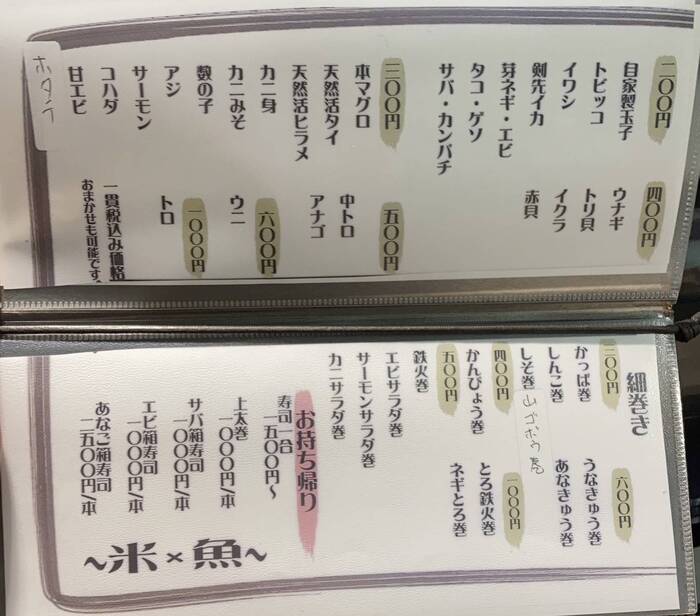 二〇〇円
自家製玉子
トビッコ
イワシ
剣先イカ
芽ネギ・エビ
タコ・ゲソ
サバ・カンパチ
三〇〇円
本マグロ
天然活タイ
天然活ヒラメ
カニ身
カニみそ
数の子
アジ
サーモン
コハダ
甘エビ
ホタテ
四〇〇円
ウナギ
トリ貝
イクラ
赤貝
五〇〇円
中トロ
アナゴ
六〇〇円
ウニ
一〇〇〇円
トロ
一貫税込み価格
おまかせも可能です。
細巻き
三〇〇円
かっぱ巻
しんこ巻
しそ巻
山ゴボウ巻
四〇〇円
かんぴょう巻
五〇〇円
鉄火巻
エビサラダ巻
サーモンサラダ巻
カニサラダ巻
六〇〇円
うなきゅう巻
あなきゅう巻
一〇〇〇円
とろ鉄火巻
ネギとろ巻
お持ち帰り
寿司一合
一五〇〇円〜
上太巻
一〇〇〇円/本
サバ箱寿司
一〇〇〇円/本
エビ箱寿司
一〇〇〇円/本
あなご箱寿司
二五〇〇円/本
~米×魚~